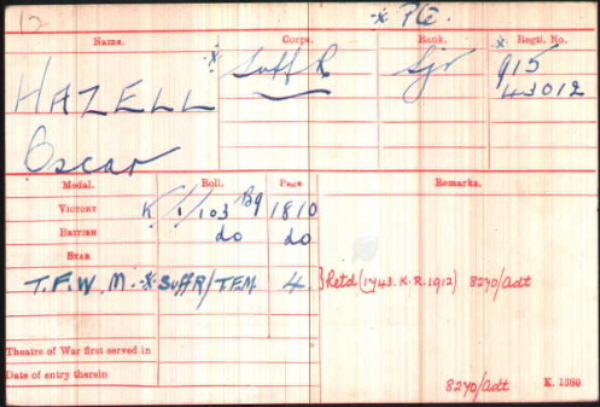 12
-x- Pte.
Name. Corps. Rank. Regtl. No.
HAZELL -x- Suff R Sjt -x- 915
43012
Oscar
Medal. Roll. Page. Remarks.
VICTORY K/1/103 B9 1810
BRITISH do do
STAR
T.F.W.M. -x- Suff R/TFM 4. } Retd (1743. K.R. 1912) 8270/Adt
Theatre of War first served in
Date of entry therein
8270/Adt K. 1380